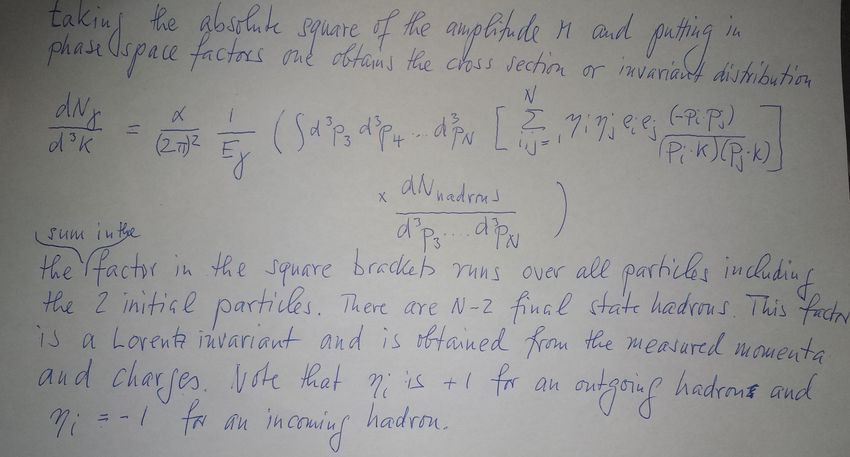 taking the absolute square of the amplitude M and putting in
phase space factors one obtains the cross section or invariant distribution
dNγ/d³K = α/(2π)² 1/Eγ (∫d³p₃ d³p₄ ... d³pN [ Σ_{i,j=1}^{N} ηi ηj ei ej (-Pi·Pj)/((Pi·K)(Pj·K)) ]
x dN_hadrons/(d³p₃ .... d³pN) )
sum in the
the factor in the square brackets runs over all particles including
the 2 initial particles. There are N-2 final state hadrons. This factor
is a Lorentz invariant and is obtained from the measured momenta
and charges. Note that ηi is +1 for an outgoing hadrons and
ηi = -1 for an incoming hadron.